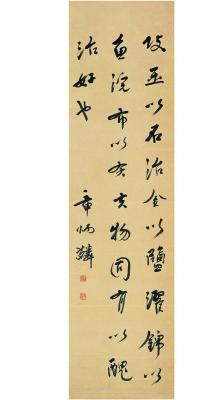 攻玉以石治金以鹽濯錦以
魚浣布以灰夫物固有以醜
治好也
章炳麟